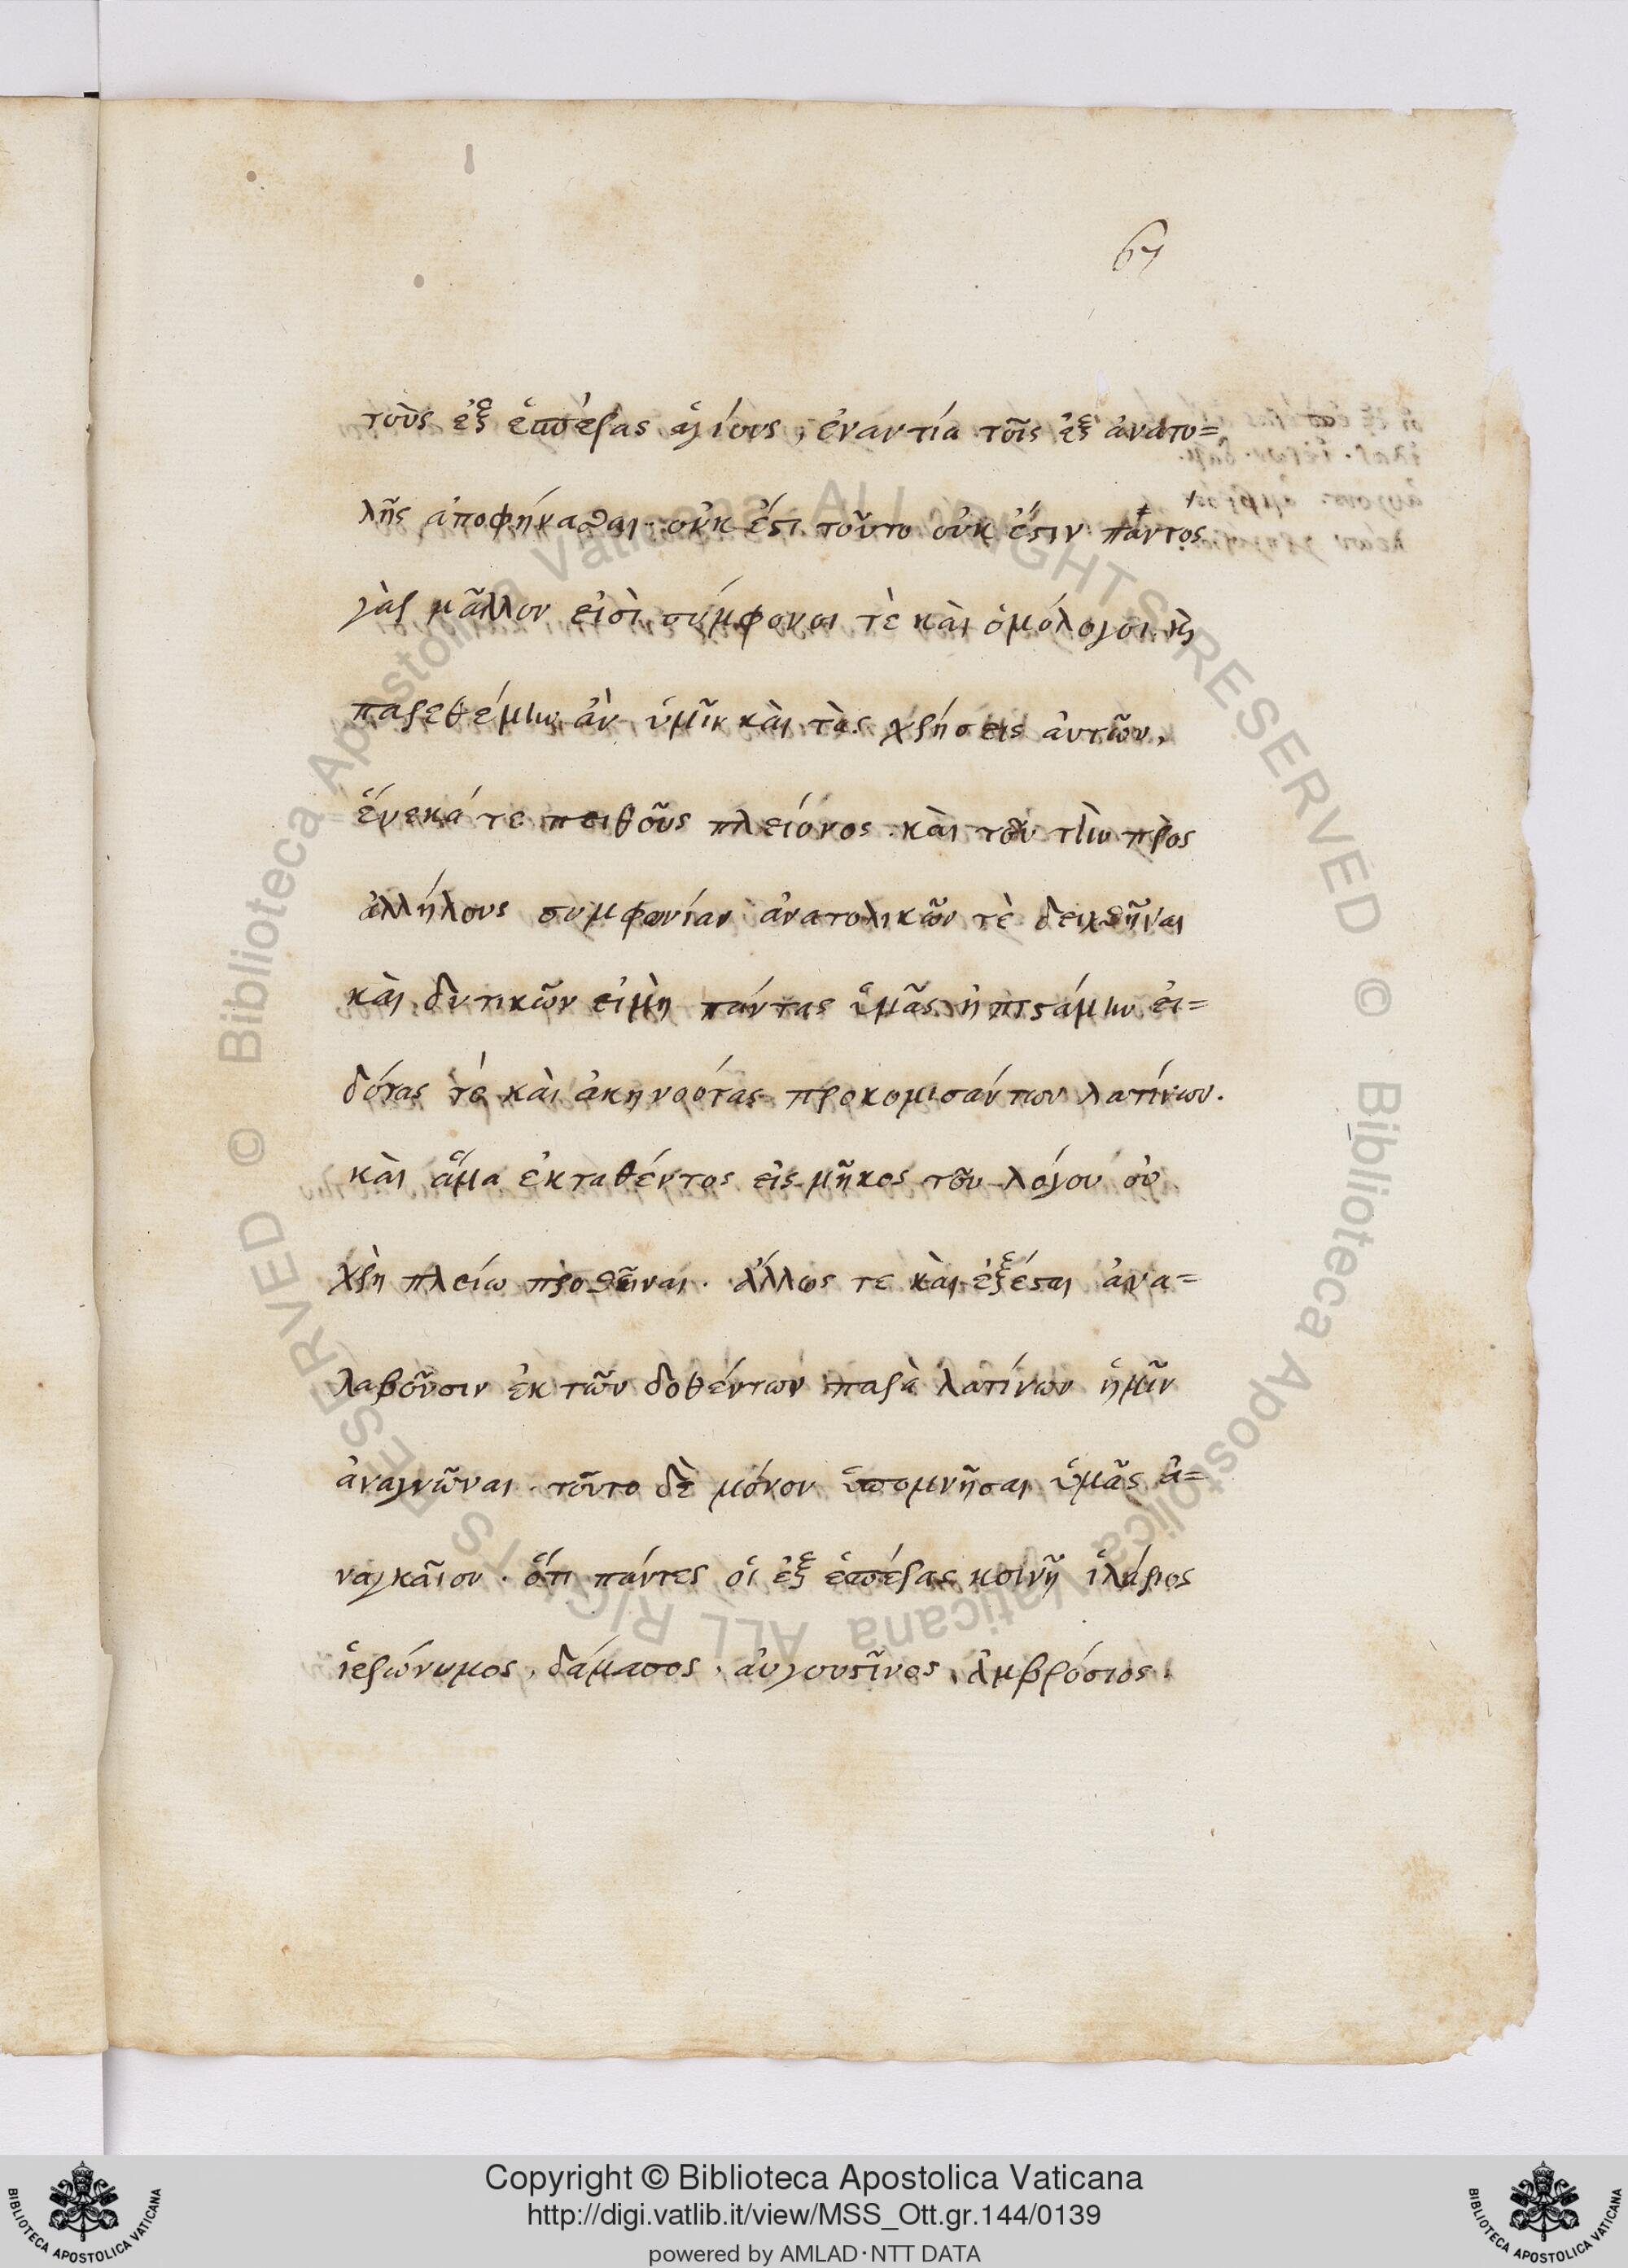 67
τοὺς ἐξ ἑσπέρας ἁγίους, ἐναντία τοῖς ἐξ ἀνατο=
λῆς ἀποφήνασθαι. οὐκ ἔστι τοῦτο οὐκ ἔστιν. πάντες
γὰρ μᾶλλον εἰσὶ σύμφονοι τὲ καὶ ὁμόλογοι. καὶ
παρεθέμην ἂν ὑμῖν καὶ τὰς χρήσεις ἀυτῶν,
ἕνεκά τε πειθοῦς πλείονος. καὶ τοῦ τὴν πρὸς
ἀλλήλους συμφωνίαν ἀνατολικῶν τὲ δειχθῆναι
καὶ δυτικῶν εἰμὴ πάντας ὑμᾶς ἠπιστάμην εἰ=
δότας τέ καὶ ἀκηκοότας προκομισάντων λατίνων.
καὶ ἅμα ἐκταθέντος εἰς μῆκος τοῦ λόγου οὐ
χρὴ πλείω προσθεῖναι. ἄλλως τε καὶ ἐξέσται ἀνα=
λαβοῦσιν ἐκ τῶν δοθέντων παρὰ λατίνων ἡμῖν
ἀναγνῶναι. τοῦτο δὲ μόνον ὑπομνῆσαι ὑμᾶς ἀ=
ναγκαῖον. ὅτι πάντες οἱ ἐξ ἑσπέρας κοινῇ ἱλάριος
ἱερώνυμος, δάμασος, ἀυγουστῖνος, ἀμβρόσιος.
© Biblioteca Apostolica Vaticana ALL RIGHTS RESERVED © Biblioteca Apostolica Vaticana ALL RIGHTS RESERVED
Copyright © Biblioteca Apostolica Vaticana
http://digi.vatlib.it/view/MSS_Ott.gr.144/0139
powered by AMLAD·NTT DATA
BIBLIOTECA APOSTOLICA VATICANA
BIBLIOTECA APOSTOLICA VATICANA